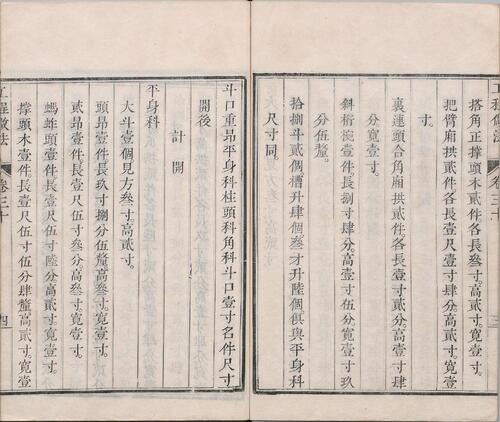 搭角正撐頭木貳件各長叁寸高貳寸寬壹寸
把臂廂拱貳件各長壹尺壹寸肆分高貳寸寬壹
寸
裏連頭合角廂拱貳件各長壹寸貳分高壹寸肆
分寬壹寸
斜桁椀壹件長捌寸肆分高壹寸伍分寬壹寸玖
分伍釐
拾捌斗貳個槽升肆個叁才升陸個俱與平身科
尺寸同
斗口重昂平身科柱頭科角科斗口壹寸名件尺寸
開後
計開
平身科
大斗壹個見方叁寸高貳寸
頭昂壹件長玖寸捌分伍釐高叁寸寬壹寸
貳昂壹件長壹尺伍寸叁分高叁寸寬壹寸
螞蚱頭壹件長壹尺伍寸陸分高貳寸寬壹寸
撐頭木壹件長壹尺伍寸伍分肆釐高貳寸寬壹
工程做法
卷三十
四